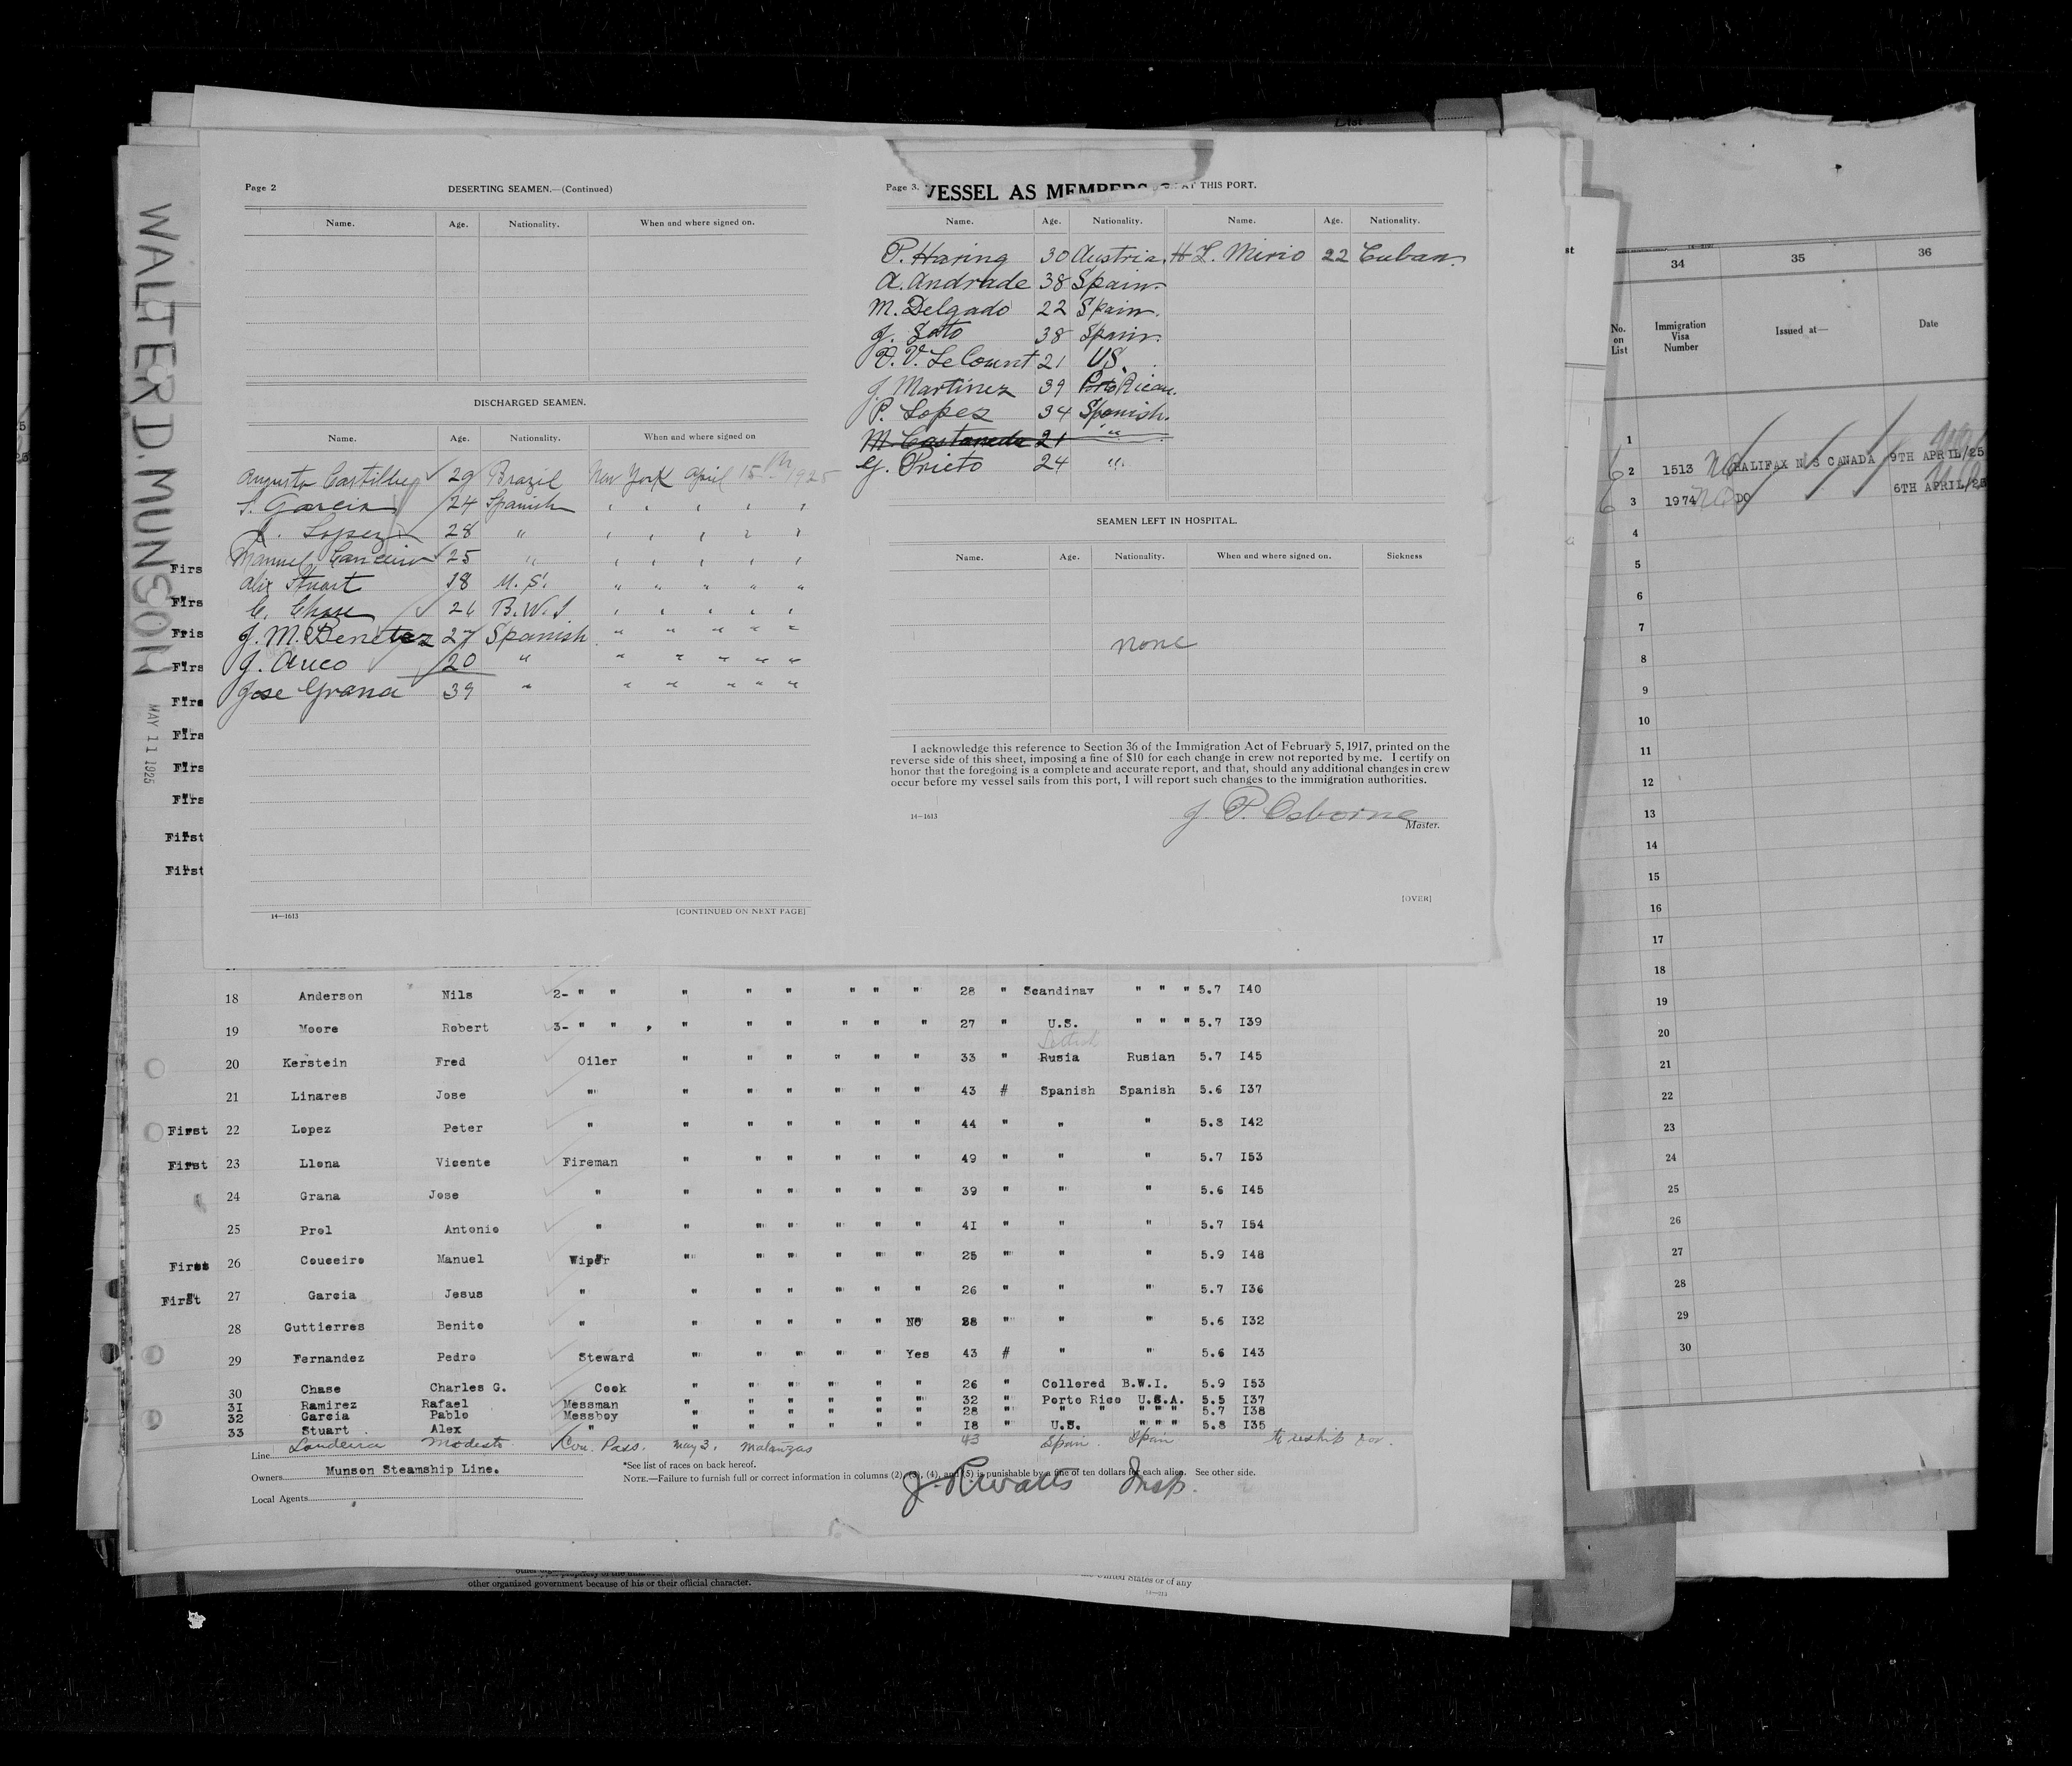 List
WALTER D. MUNSON
MAY 11 1925
Page 2 DESERTING SEAMEN.—(Continued)
Name. Age. Nationality. When and where signed on.
DISCHARGED SEAMEN.
Name. Age. Nationality. When and where signed on
Augusto 29 Brazil New York April 15th 1925
S. Garcia 24 Spanish " " " " "
J. Lopez 28 " " " " " "
Manuel 25 " " " " " "
Alix Stuart 18 U. S. " " " " "
C. Chase 26 B.W.I " " " " "
J. M. Benetez 27 Spanish " " " " "
J. 20 " " " " " "
Jose Grana 39 " " " " " "
14—1613 [CONTINUED ON NEXT PAGE]
Page 3. VESSEL AS MEMBERS AT THIS PORT.
Name. Age. Nationality. Name. Age. Nationality.
P. Haring 30 Austria. H L. Mirio 22 Cuban.
A. Andrade 38 Spain.
M. Delgado 22 Spain.
J. Soto 38 Spain.
V. Le Count 21 US.
J. Martinez 39 Porto Rican.
P. Lopez 34 Spanish.
M. Castaneda 21 "
G. Prieto 24 "
SEAMEN LEFT IN HOSPITAL.
Name. Age. Nationality. When and where signed on. Sickness
none
I acknowledge this reference to Section 36 of the Immigration Act of February 5, 1917, printed on the
reverse side of this sheet, imposing a fine of $10 for each change in crew not reported by me. I certify on
honor that the foregoing is a complete and accurate report, and that, should any additional changes in crew
occur before my vessel sails from this port, I will report such changes to the immigration authorities.
J. P. Osborne
14—1613 Master.
[OVER]
Firs
Firs
Fris
Firs
Firs
Firs
Firs
Firs
First
First
18 Anderson Nils 2- " " " " " " " " 28 " Scandinav " " " 5.7 I40
19 Moore Robert 3- " " , " " " " " " 27 " U.S. " " " 5.7 I39
20 Kerstein Fred Oiler " " " " " " 33 " Rusia Rusian 5.7 I45
21 Linares Jose " " " " " " " 43 # Spanish Spanish 5.6 I37
First 22 Lopez Peter " " " " " " " 44 " " " 5.8 I42
First 23 Llona Vicente Fireman " " " " " " 49 " " " 5.7 I53
24 Grana Jose " " " " " " " 39 " " " 5.6 I45
25 Prol Antonio " " " " " " " 41 " " " 5.7 I54
First 26 Couceiro Manuel Wiper " " " " " " 25 " " " 5.9 I48
First 27 Garcia Jesus " " " " " " " 26 " " " 5.7 I36
28 Guttierres Benito " " " " " " No 38 " " " 5.6 I32
29 Fernandez Pedro Steward " " " " " Yes 43 # " " 5.6 I43
30 Chase Charles G. Cook " " " " " " 26 " Collored B.W.I. 5.9 I53
31 Ramirez Rafael Messman " " " " " " 32 " Porto Rico U.S.A. 5.5 I37
32 Garcia Pablo Messboy " " " " " " 28 " " " " " " 5.7 I38
33 Stuart Alex " " " " " " " I8 " U.S. " " " 5.8 I35
Landeira Modesto. Con. Pass. May 3, Matanzas 43 Spain. Spain to reship for.
Line
*See list of races on back hereof.
Owners Munson Steamship Line.
NOTE.—Failure to furnish full or correct information in columns (2), (3), (4), and (5) is punishable by a fine of ten dollars for each alien. See other side.
Local Agents
J. R. Watts Insp.
other organized government because of his or their official character.
United States or of any
34 35 36
No. on List Immigration Visa Number Issued at— Date
1
2 1513 HALIFAX N S CANADA 9TH APRIL/25
3 1974 DO 6TH APRIL/25
4
5
6
7
8
9
10
11
12
13
14
15
16
17
18
19
20
21
22
23
24
25
26
27
28
29
30